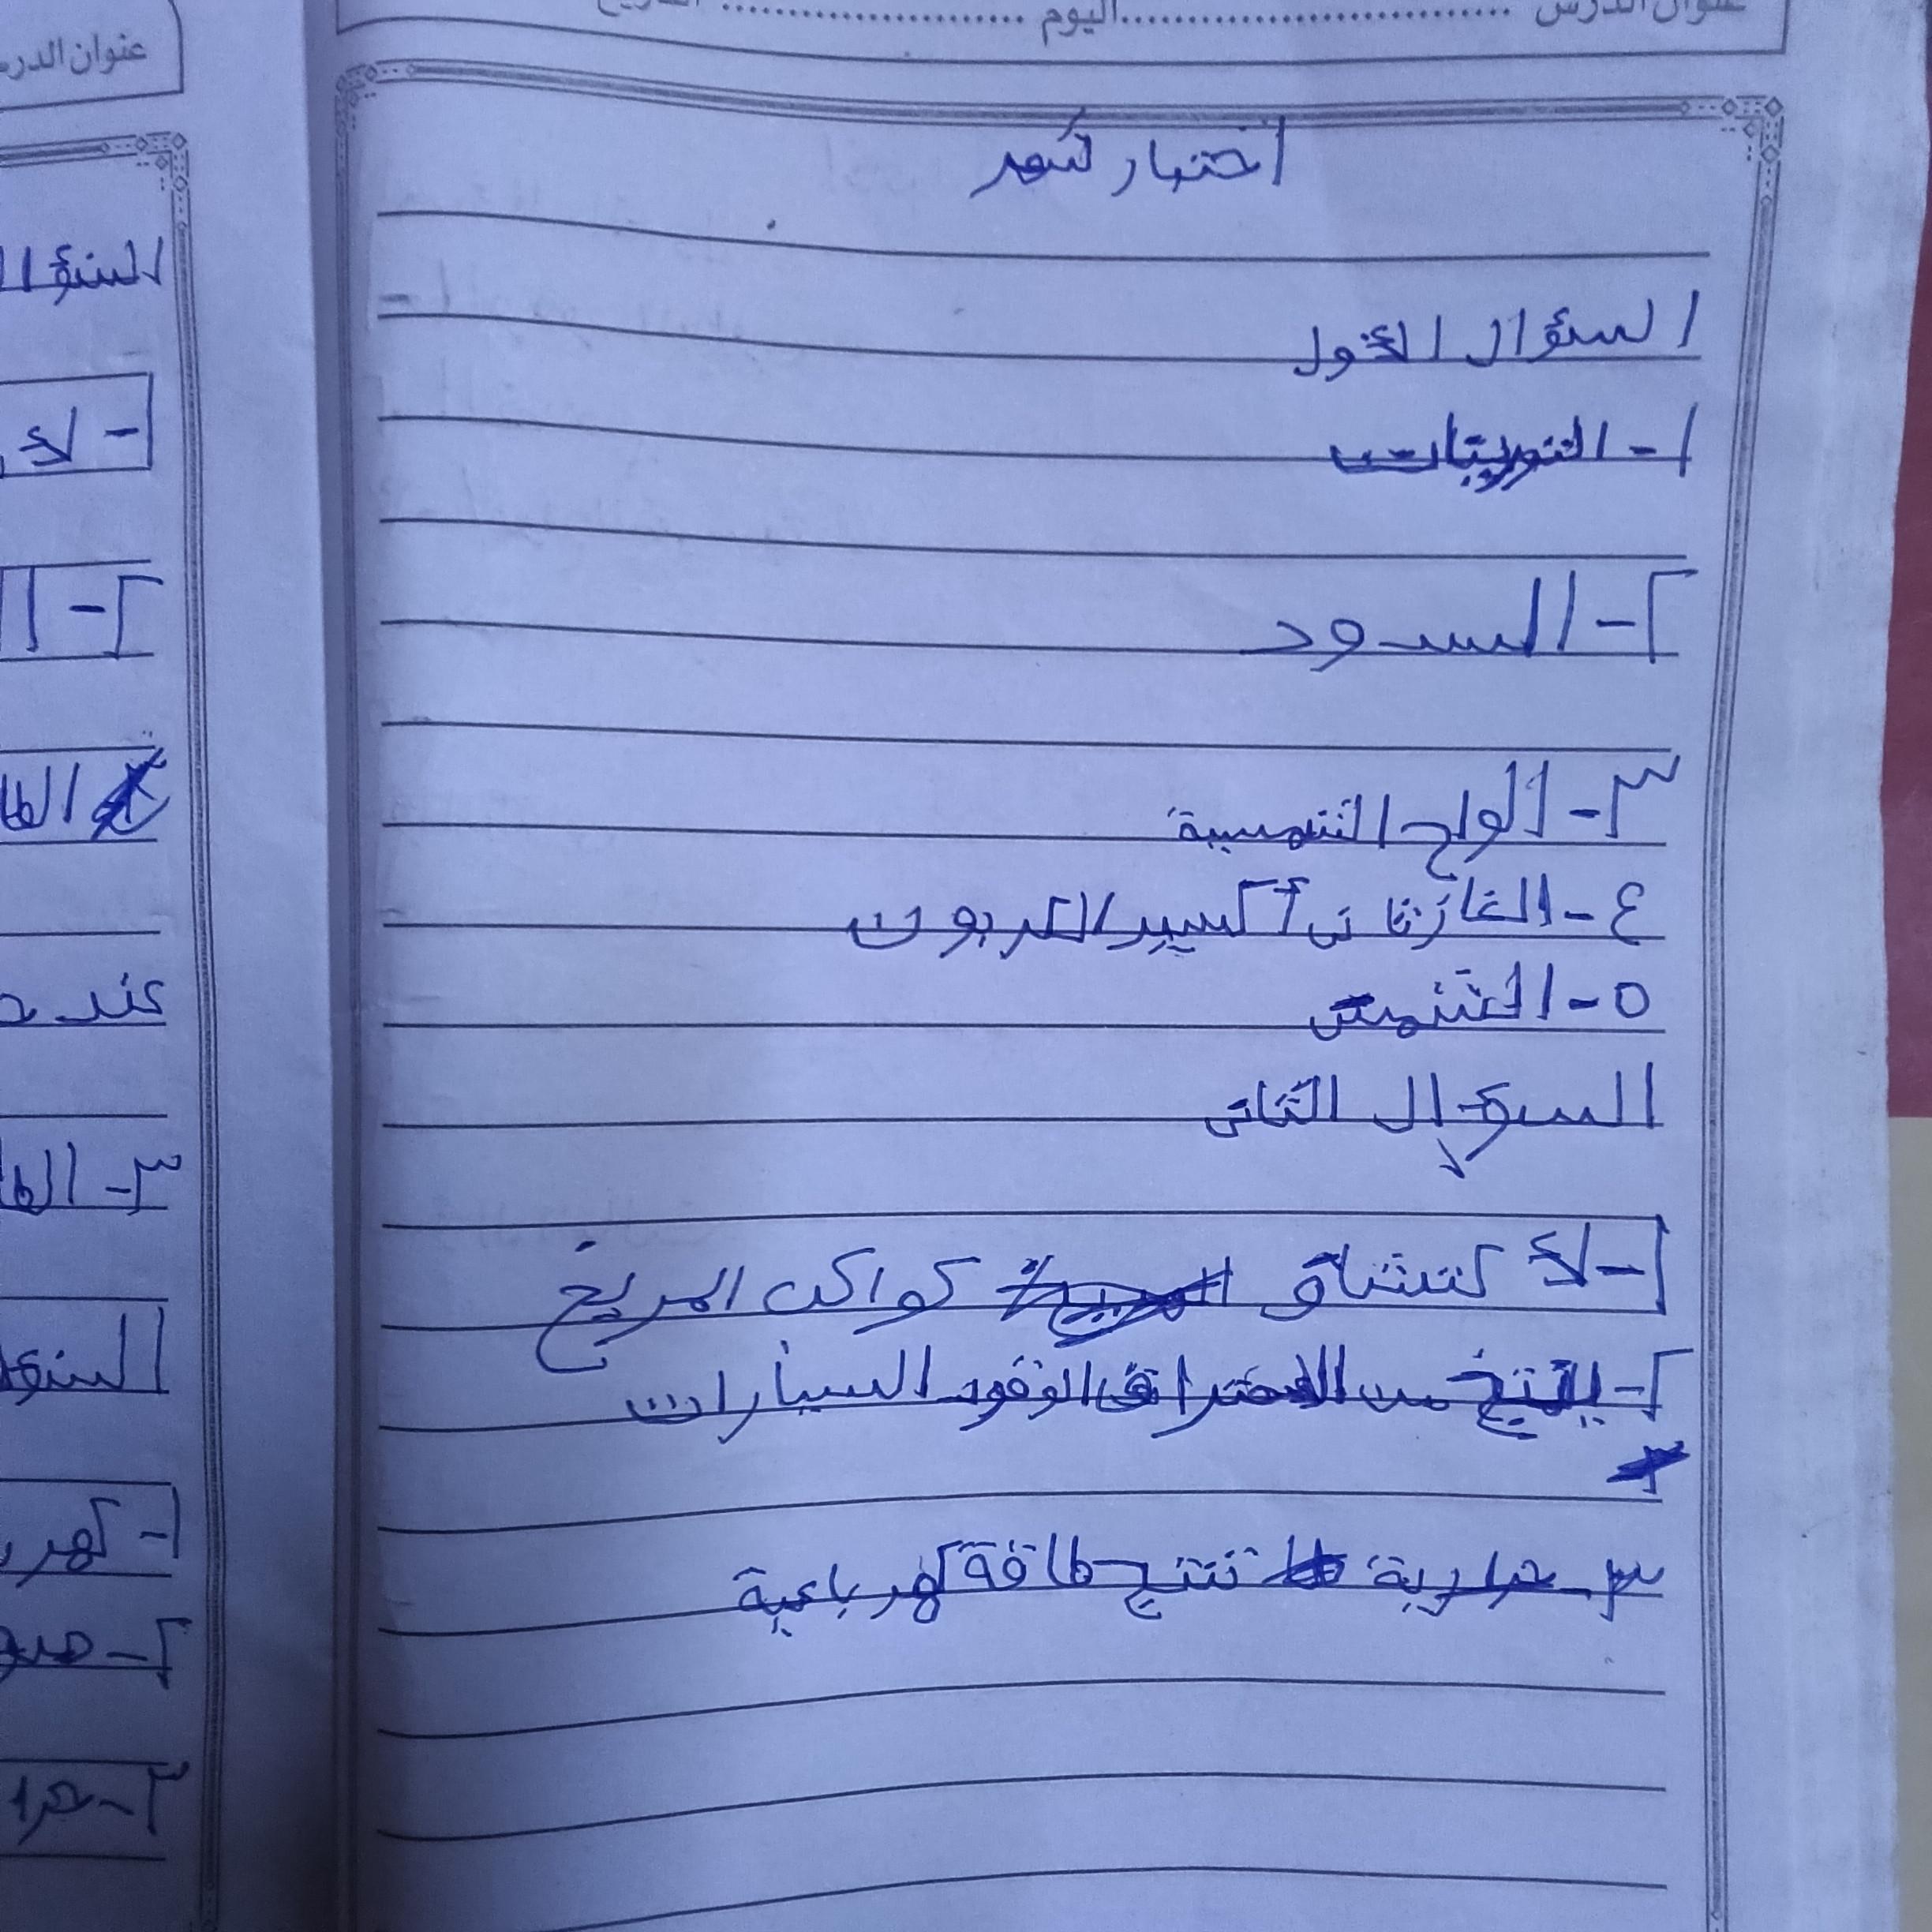 عنوان الدرس ........................ اليوم ........................ التاريخ
اختبار شهر
السؤال الأول
١- التوربينات
٢- السدود
٣- ألواح الشمسية
٤- الغاز ثاني أكسيد الكربون
٥- الشمس
السؤال الثاني
١- لأكتشاف كواكب المريخ
٢- ينتج من الاحتراق الوقود السيارات
٣- حرارية تنتج طاقة كهربائية
عنوان الدرس
السؤال
٢- ا
عند
٣- الطا
السؤ
١- كهر
٢-
٣- حرا